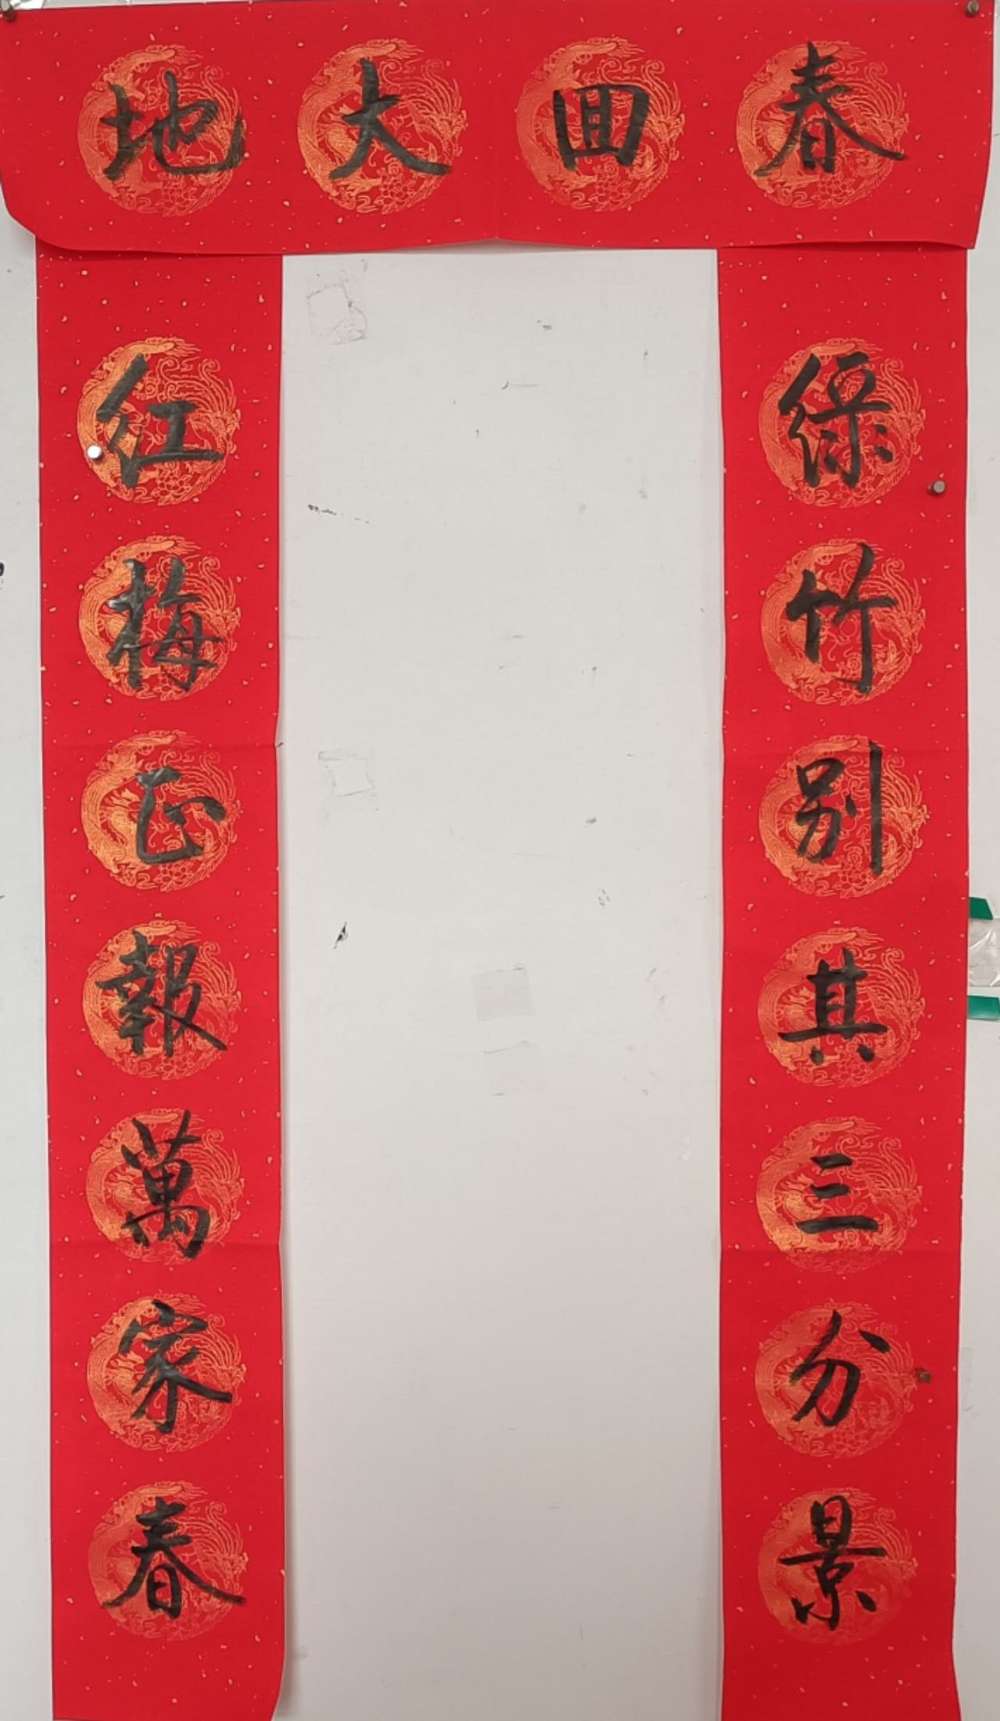 春回大地
綠竹别其三分景
紅梅正報萬家春